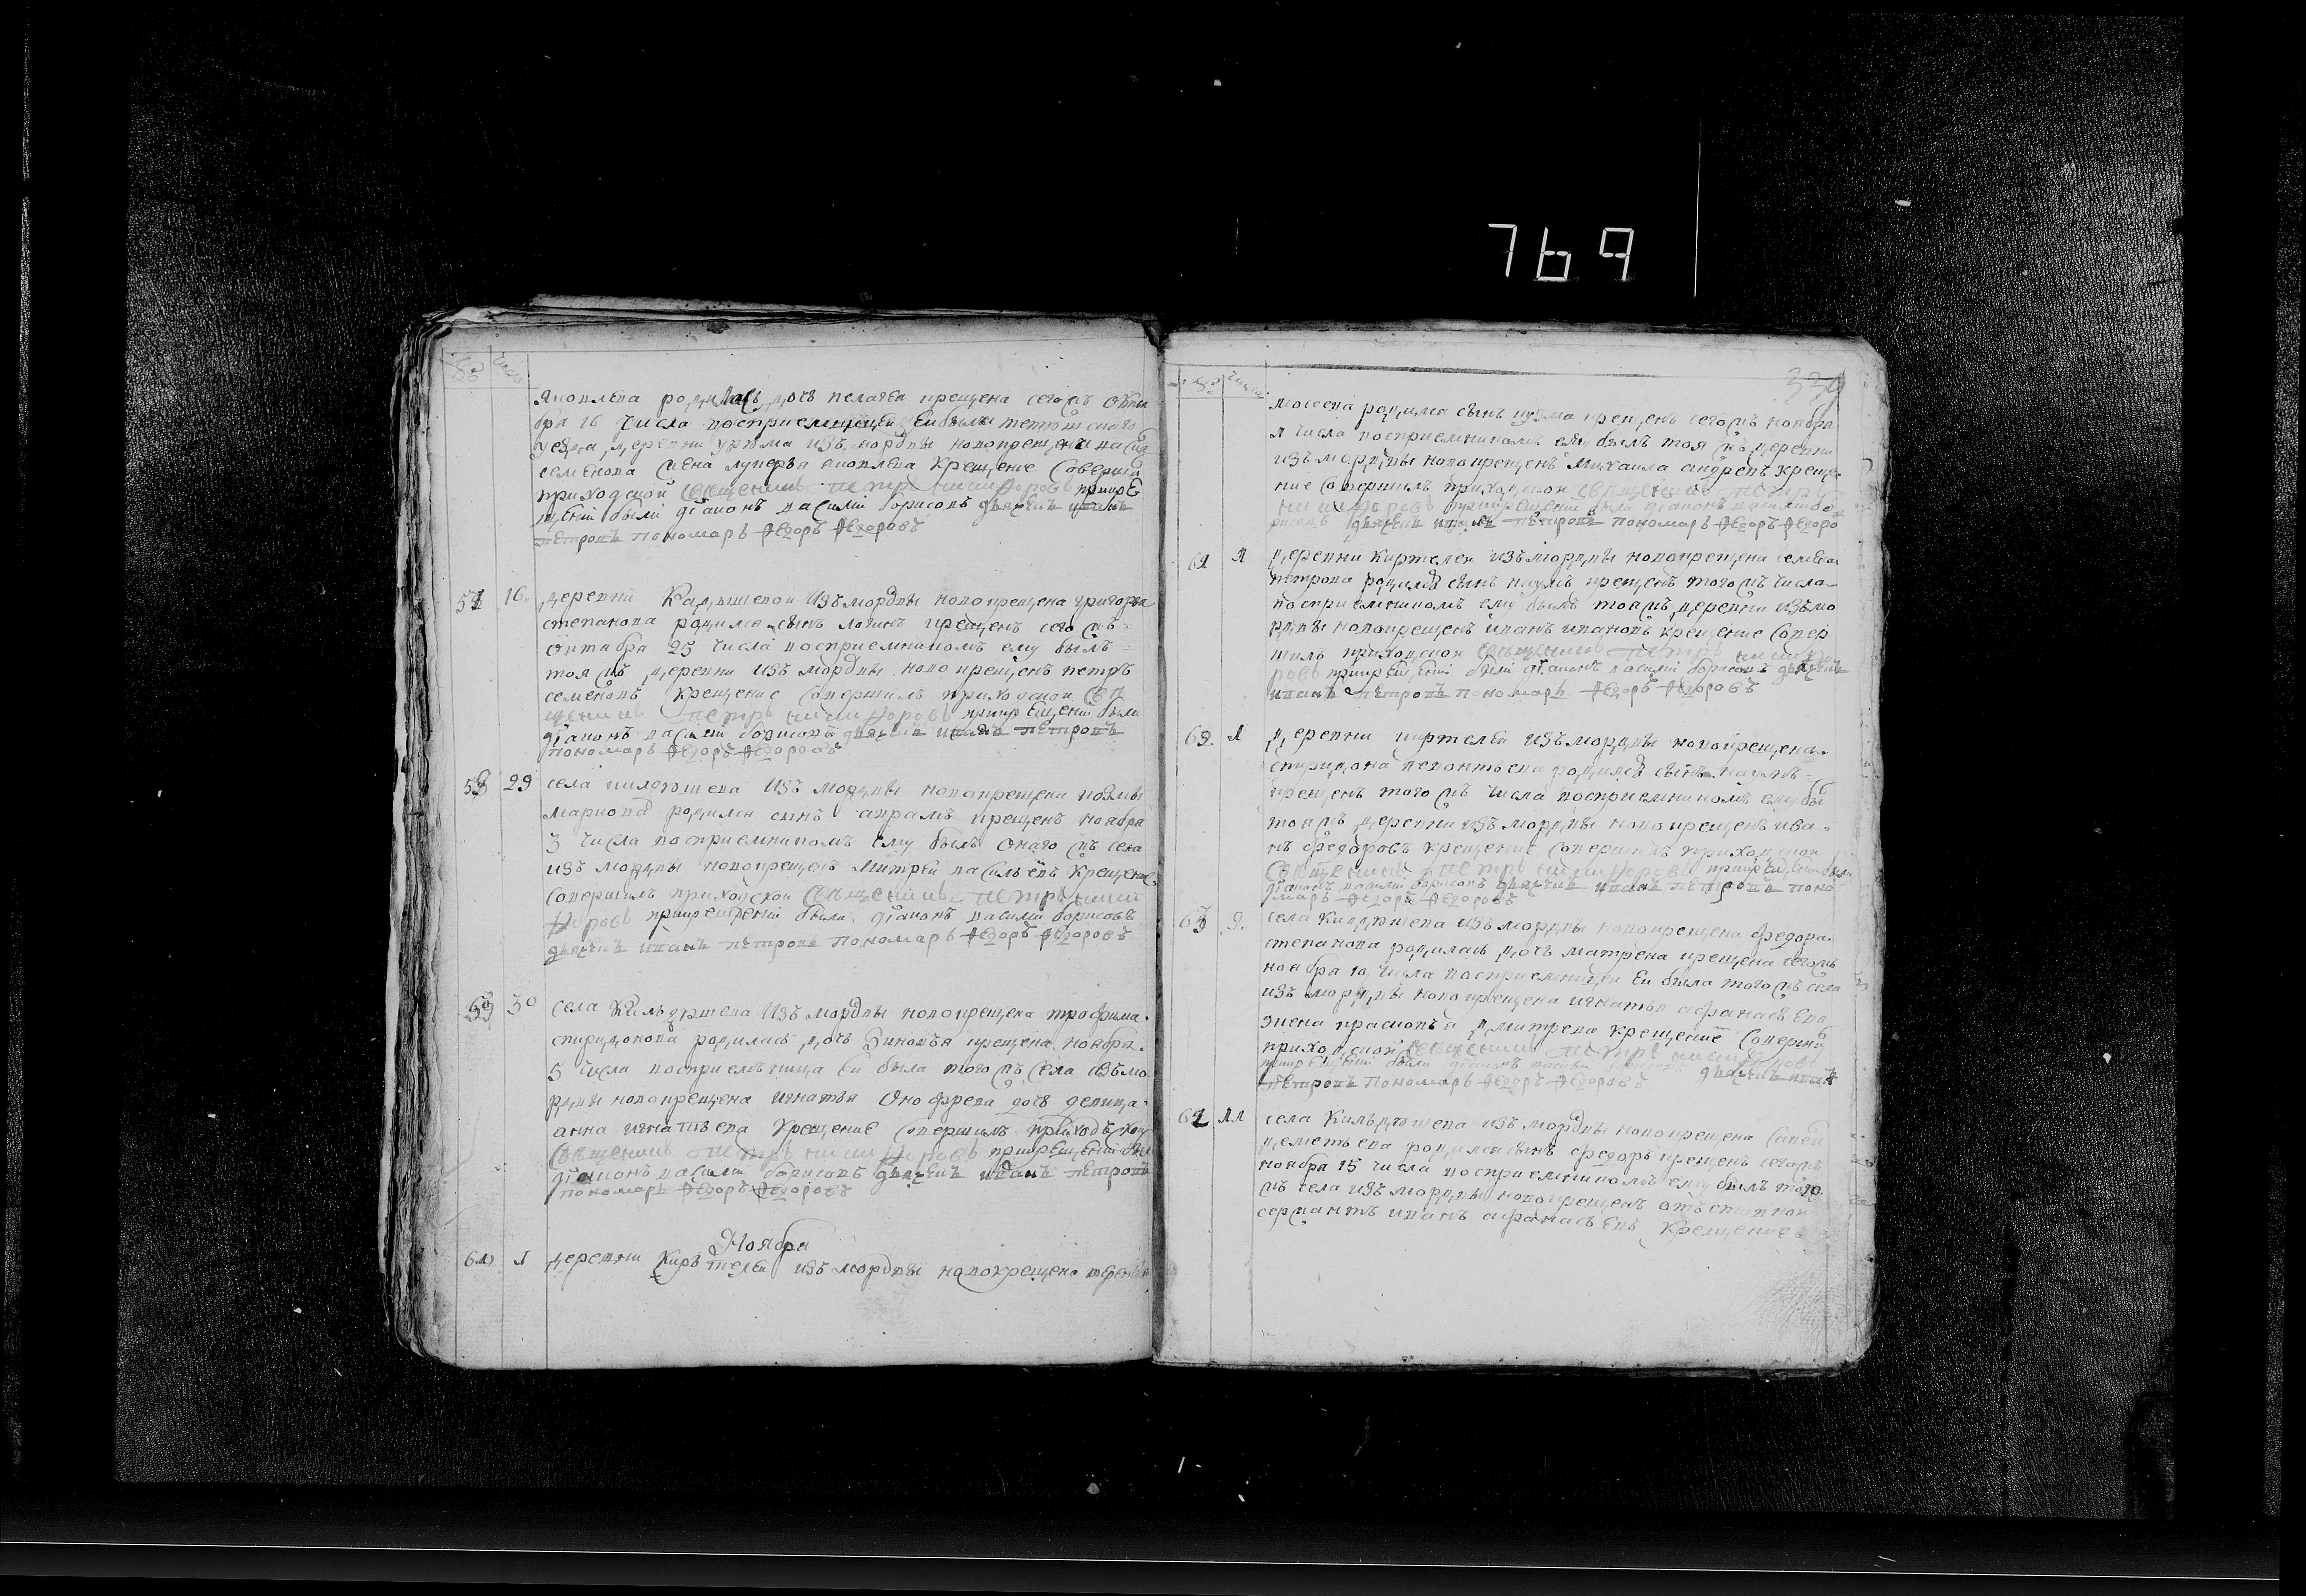 769
339
№ числа
Яковлева родилась дочь пелагея крещена сегожъ октя
бря 16 числа восприемницей ей была тетюшскаго
уезда деревни урюма изъ мордвы новокрещена васил
семенова жена лукерья яковлева крещение соверши
приходской священникъ петръ никифоровъ при кре
щеніи были діаконъ василій борисовъ дьячекъ иванъ
петровъ пономарь Ѳедоръ Ѳедоровъ
57 16 деревни Кадышевой изъ мордвы новокрещена григорья
степанова родился сынъ логинъ крещенъ сегожъ
октября 25 числа восприемникомъ ему былъ
тояжъ деревни изъ мордвы новокрещенъ петръ
семеновъ крещение совершилъ приходской свя
щеникъ петръ никифоровъ при крещеніи были
діаконъ василій борисовъ дьячекъ иванъ петровъ
пономарь Ѳедоръ Ѳедоровъ
58 29 села килдюшева изъ мордвы новокрещена козмы
маркова родился сынъ аврамъ крещенъ ноября
3 числа восприемникомъ ему былъ онагожъ села
изъ мордвы новокрещенъ митрей васильевъ крещение
совершилъ приходской священникъ петръ ники
форовъ при крещеніи были діаконъ василій борисовъ
дьячекъ иванъ петровъ пономарь Ѳедоръ Ѳедоровъ
59 30 села Кильдюшева изъ мордвы новокрещена трофима
спиридонова родилась дочь Зиновья крещена ноября
5 числа восприемъница ей была тогожъ села изъ мо
рдвы новокрещена игнатья Онофрева дочь девица
анна игнатьева крещение совершилъ приходъской
священникъ петръ никифоровъ при крещеніи были
діаконъ василій борисовъ дьячекъ иванъ петровъ
пономарь Ѳедоръ Ѳедоровъ
Ноября
60 1 деревни Кирътелей изъ мордвы новокрещена
мосеева родился сынъ кузма крещенъ сегожъ ноября
числа восприемникомъ ему былъ тояжъ деревни
изъ мордвы новокрещенъ михаила андреевъ креще
ние совершилъ приходской священникъ петръ
никифоровъ при крещеніи были діаконъ василій бо
рисовъ дьячекъ иванъ петровъ пономарь Ѳедоръ Ѳедоро
61 1 деревни Киртелей изъ мордвы новокрещена семена
петрова родился сынъ наумъ крещенъ тогожъ числа
восприемникомъ ему былъ тояжъ деревни изъ мо
рдвы новокрещенъ иванъ ивановъ крещение совер
шилъ приходской священникъ петръ никифо
ровъ при крещеніи были діаконъ василій борисовъ дьячекъ
иванъ петровъ пономарь Ѳедоръ Ѳедоровъ
62 1 деревни киртелей изъ мордвы новокрещена
спиридона леонтьева родился сынъ наумъ
крещенъ тогожъ числа восприемникомъ ему бы
тояжъ деревни изъ мордвы новокрещенъ ива
нъ федоровъ крещение совершилъ приходской
священникъ петръ никифоровъ при крещеніи были
діаконъ василій борисовъ дьячекъ иванъ петровъ поно
марь Ѳедоръ Ѳедоровъ
63 9 села Килдюшева изъ мордвы новокрещена федора
степанова родилась дочь матрена крещена сегожъ
ноября 10 числа восприемницей ей была тогожъ села
изъ мордвы новокрещена игнатья афанасьева
жена прасковья дмитрева крещение соверши
приходской священникъ петръ никифоровъ
при крещеніи были діаконъ василій борисовъ дьячекъ иванъ
петровъ пономарь Ѳедоръ Ѳедоровъ
64 11 села Кильдюшева изъ мордвы новокрещена савел
дементьева родился сынъ федоръ крещенъ сегожъ
ноября 15 числа восприемникомъ ему былъ того
жъ села изъ мордвы новокрещенъ отъставной
сержантъ иванъ афанасьевъ крещение